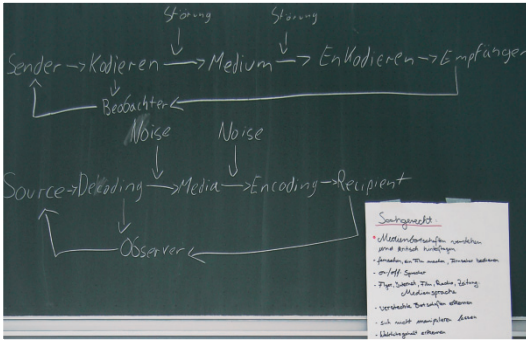 Störung Störung
Sender → Kodieren → Medium → EnKodieren → Empfänger
Beobachter
Noise Noise
Source → Decoding → Media → Encoding → Recipient
Observer
Sachgerecht:
• Medienbotschaften verstehen
und kritisch hinterfragen
• on/off Sprecher
• Flyer, Internet, Film, Radio, Zeitung
Mediensprache
• versteckte Botschaften erkennen
• sich nicht manipulieren lassen
erkennen